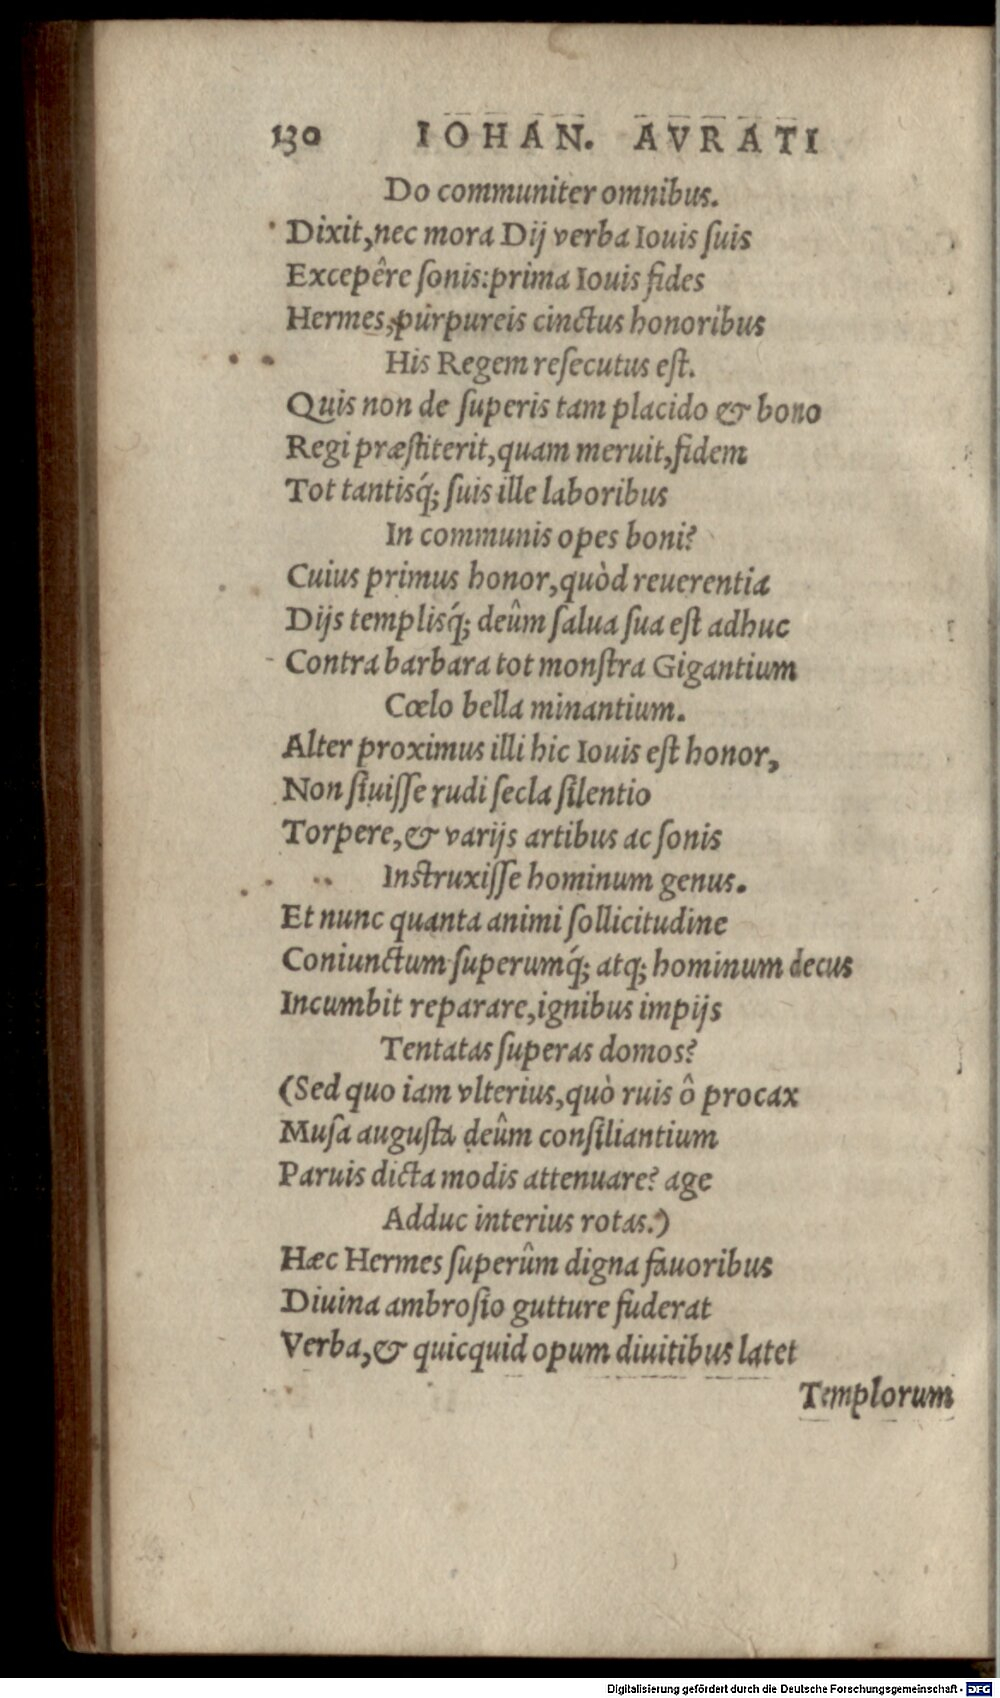 130 IOHAN. AVRATI
Do communiter omnibus.
Dixit, nec mora Dij verba Iouis suis
Excepêre sonis: prima Iouis fides
Hermes, purpureis cinctus honoribus
His Regem resecutus est.
Quis non de superis tam placido & bono
Regi præstiterit, quam meruit, fidem
Tot tantisq́; suis ille laboribus
In communis opes boni?
Cuius primus honor, quòd reuerentia
Dijs templisq́; deûm salua sua est adhuc
Contra barbara tot monstra Gigantium
Cœlo bella minantium.
Alter proximus illi hic Iouis est honor,
Non siuisse rudi secla silentio
Torpere, & varijs artibus ac sonis
Instruxisse hominum genus.
Et nunc quanta animi sollicitudine
Coniunctum superumq́; atq; hominum decus
Incumbit reparare, ignibus impijs
Tentatas superas domos?
(Sed quo iam vlterius, quò ruis ô procax
Musa augusta deûm consiliantium
Paruis dicta modis attenuare? age
Adduc interius rotas.)
Hæc Hermes superûm digna fauoribus
Diuina ambrosio gutture fuderat
Verba, & quicquid opum diuitibus latet
Templorum
Digitalisierung gefördert durch die Deutsche Forschungsgemeinschaft - DFG